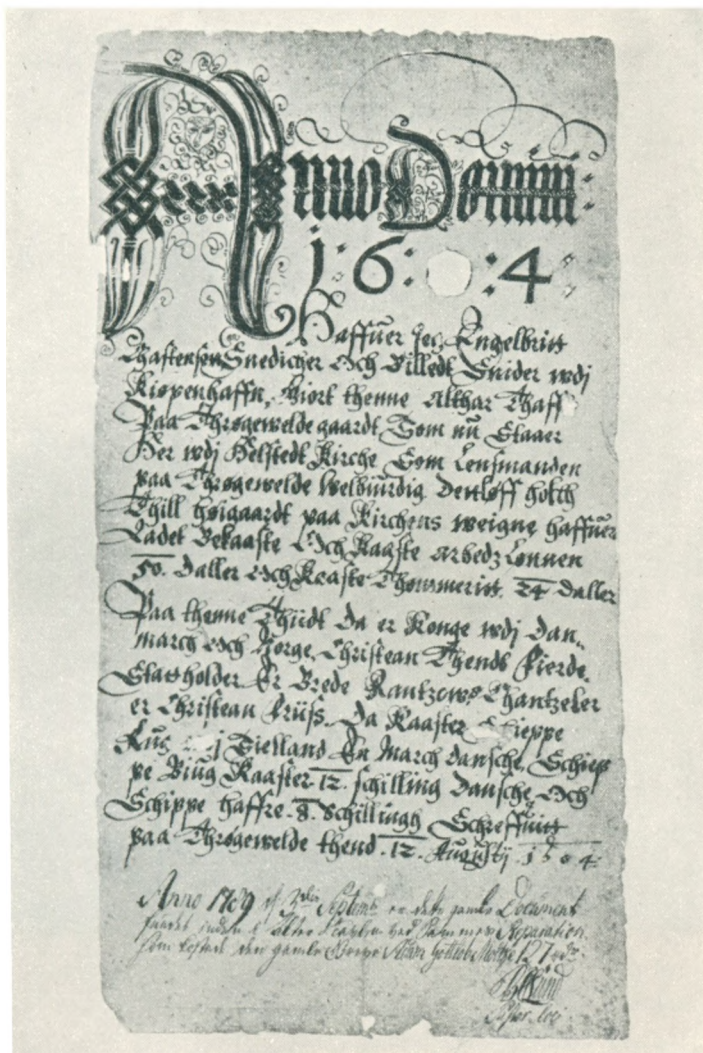 Anno Domini
1 6 4
Haffuer Jeg Engelbrit
Chastensen Snedicher Och Billedt Snider wdj
Kiøpenhaffn, Giort thenne Althar Thaff
Paa Thrøgewelde gaardt Som nu Staaer
Her wdj Helstedt Kirche Som Lensmanden
paa Thrøgewelde Welbiurdig Dettloff holch
Thill høigaardt paa Kirchens weigne haffuer
Ladet Bekaaste Och Kaaste Arbedz Lønnen
50. Daller Och Kaaste Thømmerit. 24 Daller
Paa thenne Thiidt Da er Konge wdj Dan
march Och Norge, Christean Thends Fierde
Statsholder Er Brede Rantzow, Chantzeler
er Christean Friiss. Da Kaaster Schieppe
Rug wdj Sielland En March Dansche, Schiep
pe Biug Kaaster 12. schilling Dansche, Och
Schippe haffre. 8. Schillingh Schreffuit
paa Thrøgewelde thend .12. Augustij. 1604.
Anno 1789 d. 3die Septemb. er dette gamle Document
fundet inden i Alter Tavlen ved Sammes Reparation
som kosted den gamle Greve Adam Gottlob Moltke 127 rdr